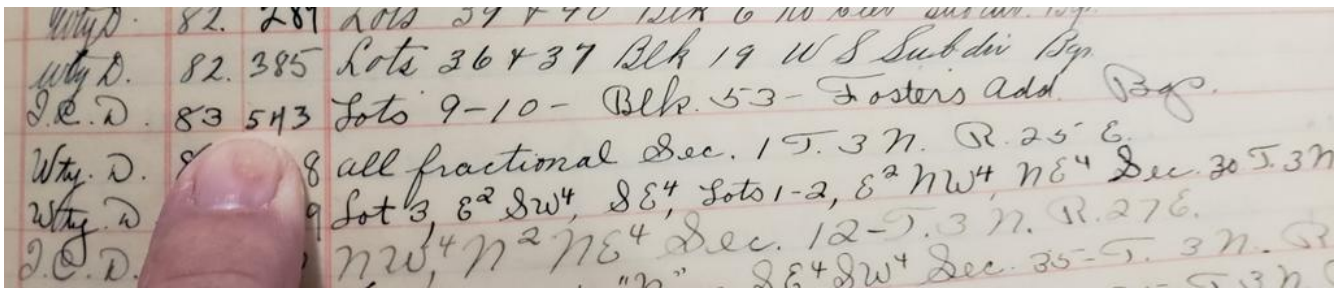 Wty D. 82. 287 Lots 39 & 40 Blk 6 Bgs.
Wty D. 82. 385 Lots 36 & 37 Blk 19 W S Subdiv Bgs.
Q.C.D. 83 543 Lots 9-10- Blk. 53- Fosters Add Bgs.
Wty. D. 8 all fractional Sec. 1 T. 3 N. R. 25 E.
Wty. D 9 Lot 3, E2 SW4, SE4, Lots 1-2, E2 NW4, NE4 Sec. 30 T. 3 N
Q.C.D. NW4, N2 NE4 Sec. 12-T. 3 N. R. 27 E.
"N" SE4 SW4 Sec. 35-T. 3 N. R
T 3 N